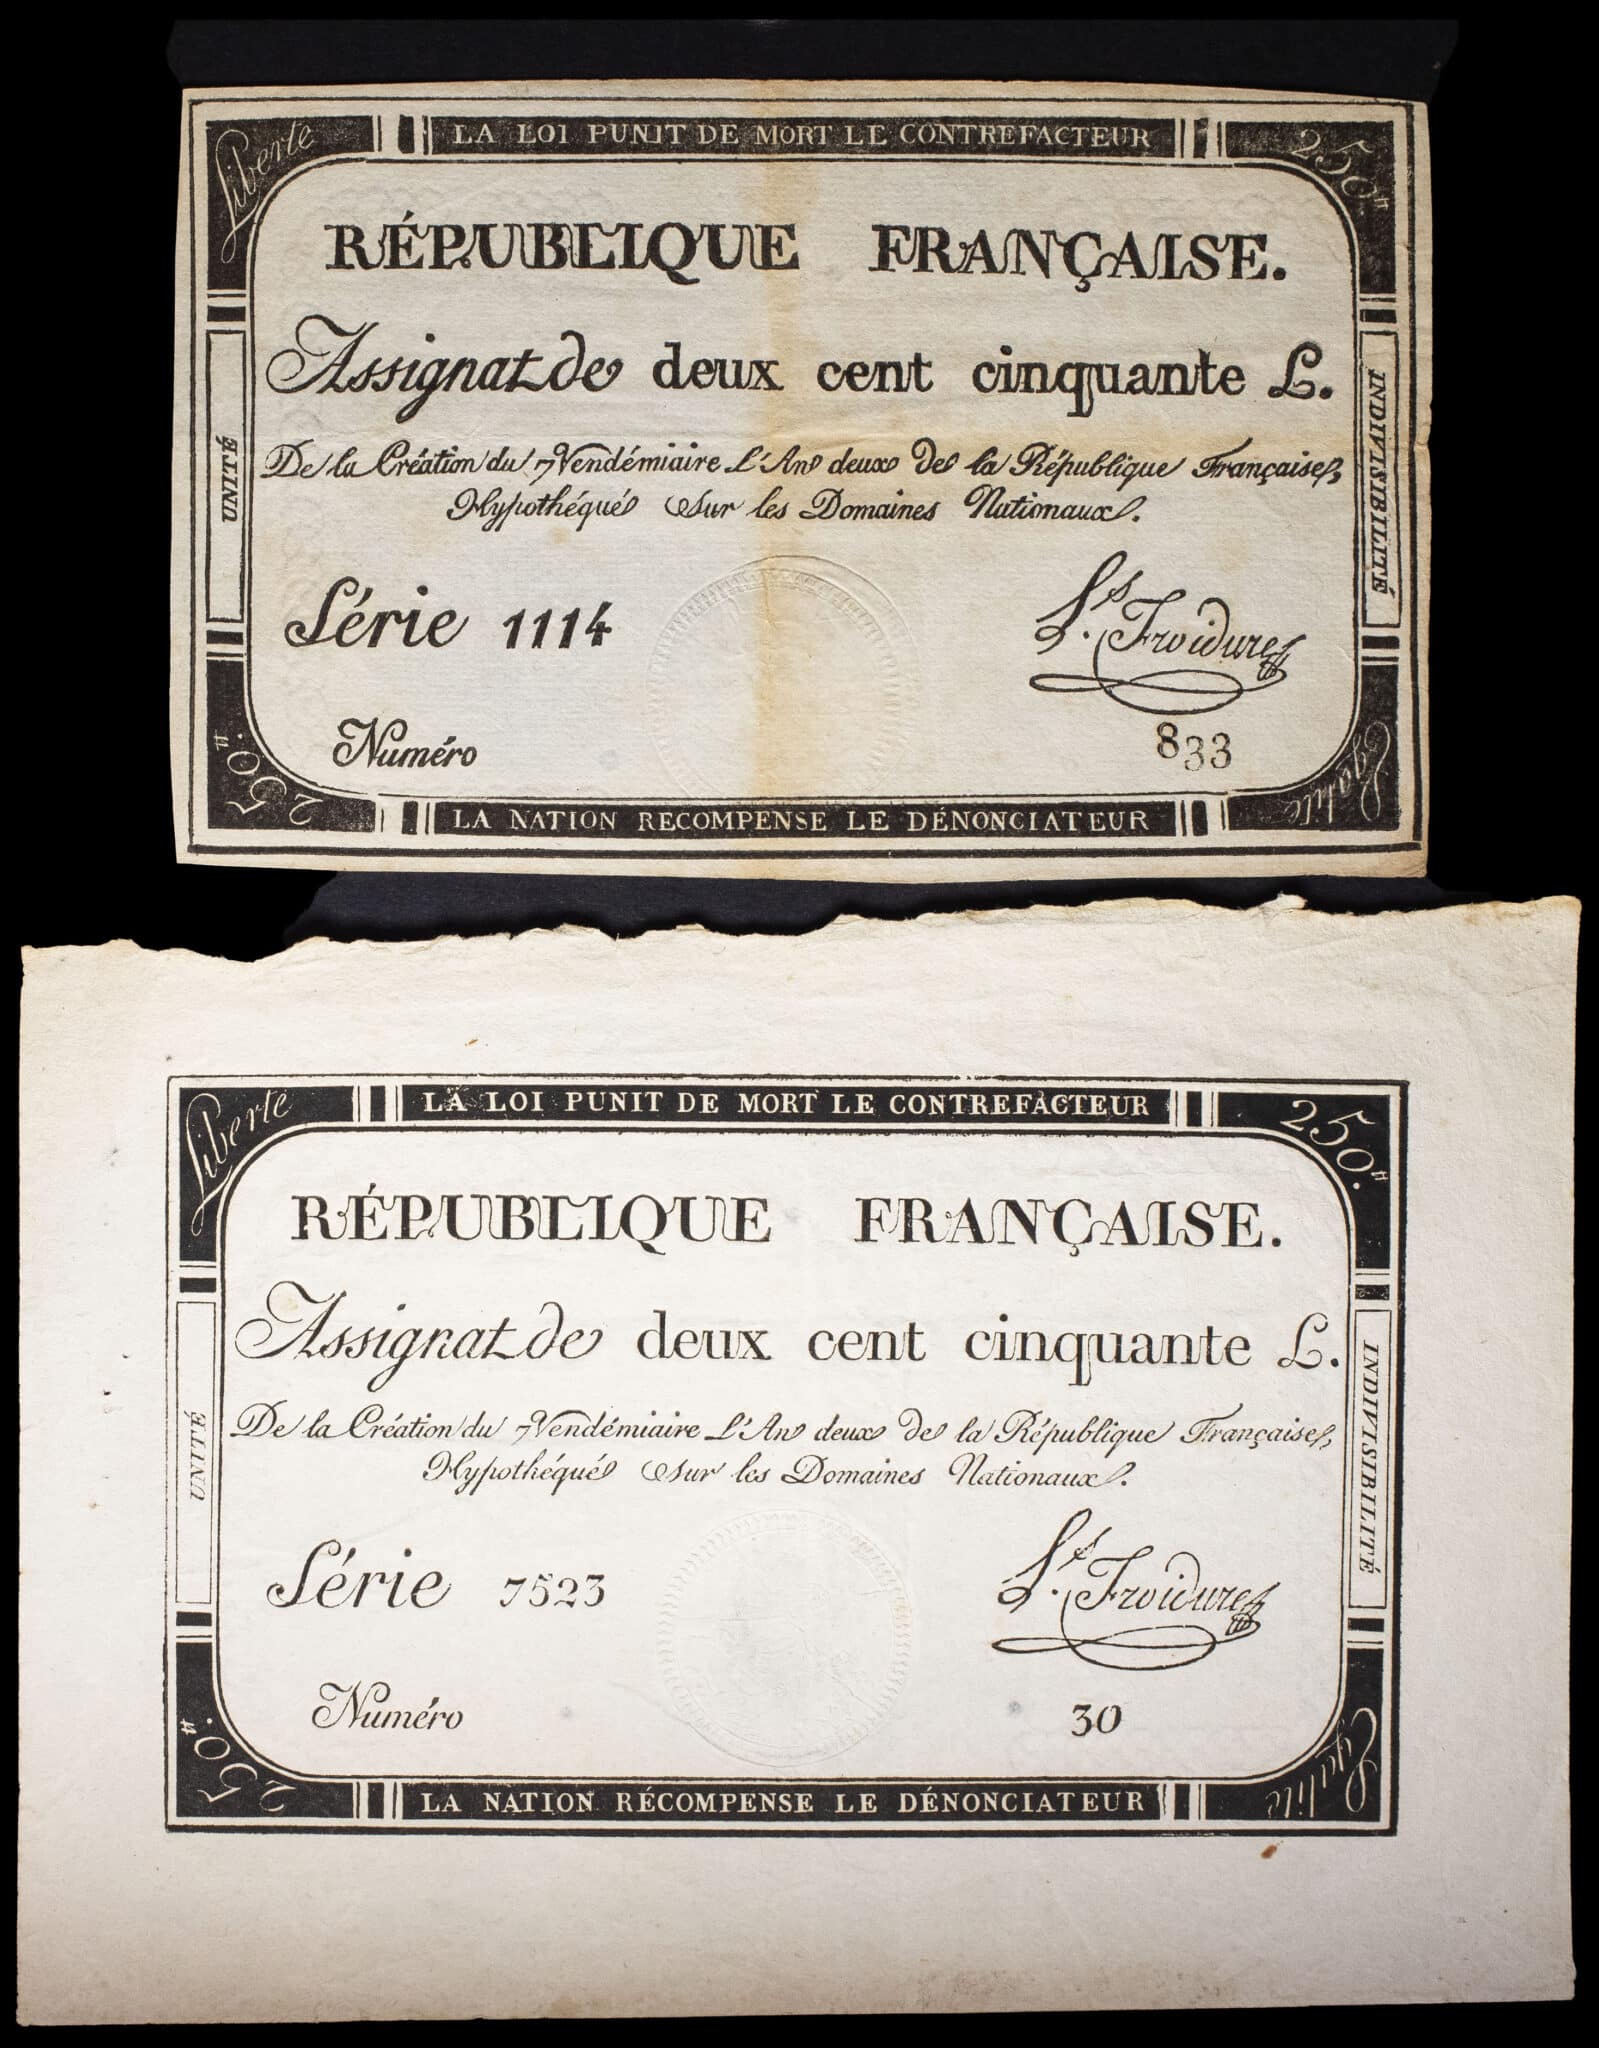 Liberte
LA LOI PUNIT DE MORT LE CONTREFACTEUR
250.tt
RÉPUBLIQUE FRANÇAISE.
Assignat de deux cent cinquante L.
De la Création du 7 Vendémiaire L'An deux de la République Française,
Hypothéqué sur les Domaines Nationaux.
UNITÉ
INDIVISIBILITÉ
Série 1114
Ls. Froidure
Numéro
833
250.tt
LA NATION RECOMPENSE LE DÉNONCIATEUR
Egalite
Liberte
LA LOI PUNIT DE MORT LE CONTREFACTEUR
250.tt
RÉPUBLIQUE FRANÇAISE.
Assignat de deux cent cinquante L.
De la Création du 7 Vendémiaire L'An deux de la République Française,
Hypothéqué sur les Domaines Nationaux.
UNITÉ
INDIVISIBILITÉ
Série 7523
Ls. Froidure
Numéro
30
250.tt
LA NATION RÉCOMPENSE LE DÉNONCIATEUR
Egalite